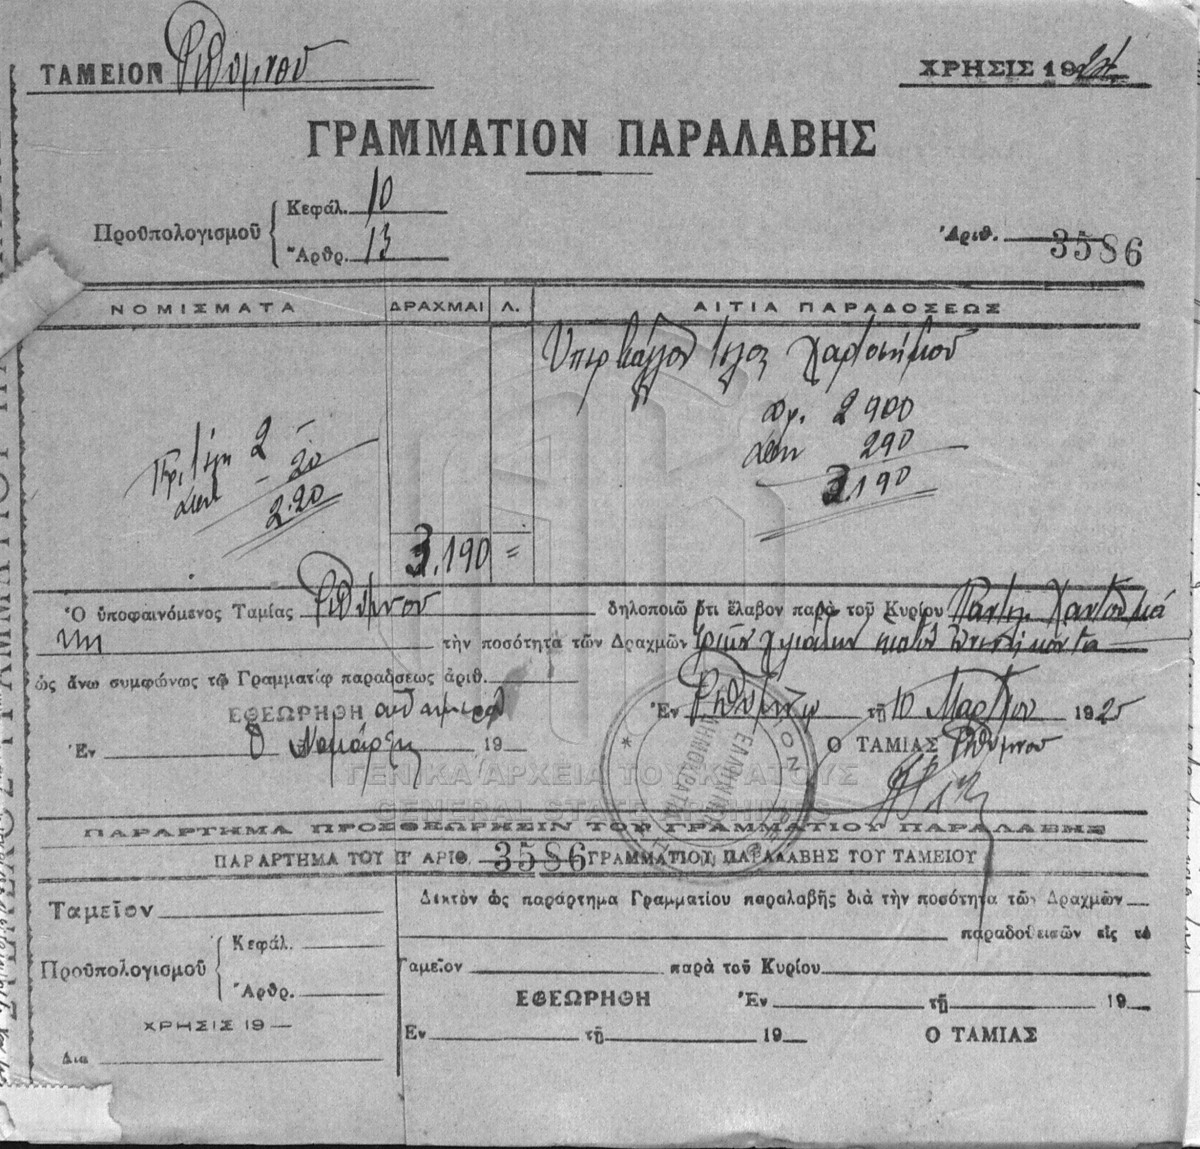 ΤΑΜΕΙΟΝ Ρεθύμνου
ΧΡΗΣΙΣ 1924
ΓΡΑΜΜΑΤΙΟΝ ΠΑΡΑΛΑΒΗΣ
Προϋπολογισμοῦ
Κεφάλ. 10
Ἄρθρ. 13
Ἀριθ. 3586
ΝΟΜΙΣΜΑΤΑ ΔΡΑΧΜΑΙ Λ. ΑΙΤΙΑ ΠΑΡΑΔΟΣΕΩΣ
Ὑπερβάλλον τέλος χαρτοσήμου
δρ. 2900
290
3.190
2 -
- 20
2.20
3.190 =
Ὁ ὑποφαινόμενος Ταμίας Ρεθύμνου δηλοποιῶ ὅτι ἔλαβον παρὰ τοῦ Κυρίου
τὴν ποσότητα τῶν Δραχμῶν τριῶν χιλιάδων ἑκατὸν ἐνενήκοντα
ὡς ἄνω συμφώνως τῷ Γραμματίῳ παραδόσεως ἀριθ.
ΕΘΕΩΡΗΘΗ αὐθημερόν
Ἐν Ρεθύμνῳ τῇ 10 Μαρτίου 1925
Ἐν Ὁ Νομάρχης 19
Ο ΤΑΜΙΑΣ Ρεθύμνου
ΕΛΛΗΝΙΚΗ ΔΗΜΟΚΡΑΤΙΑ
ΓΕΝΙΚΑ ΑΡΧΕΙΑ ΤΟΥ ΚΡΑΤΟΥΣ
GENERAL STATE ARCHIVES
ΠΑΡΑΡΤΗΜΑ ΠΡΟΣΘΕΩΡΗΣΙΝ ΤΟΥ ΓΡΑΜΜΑΤΙΟΥ ΠΑΡΑΛΑΒΗΣ
ΠΑΡΑΡΤΗΜΑ ΤΟΥ Π' ΑΡΙΘ. 3586 ΓΡΑΜΜΑΤΙΟΥ ΠΑΡΑΛΑΒΗΣ ΤΟΥ ΤΑΜΕΙΟΥ
Ταμεῖον
Προϋπολογισμοῦ
Κεφάλ.
Ἄρθρ.
ΧΡΗΣΙΣ 19
Δια
Δεκτὸν ὡς παράρτημα Γραμματίου παραλαβῆς διὰ τὴν ποσότητα τῶν Δραχμῶν
παραδοθεισῶν εἰς τὸ
Ταμεῖον παρὰ τοῦ Κυρίου
ΕΘΕΩΡΗΘΗ Ἐν τῇ 19
Ἐν τῇ 19 Ο ΤΑΜΙΑΣ